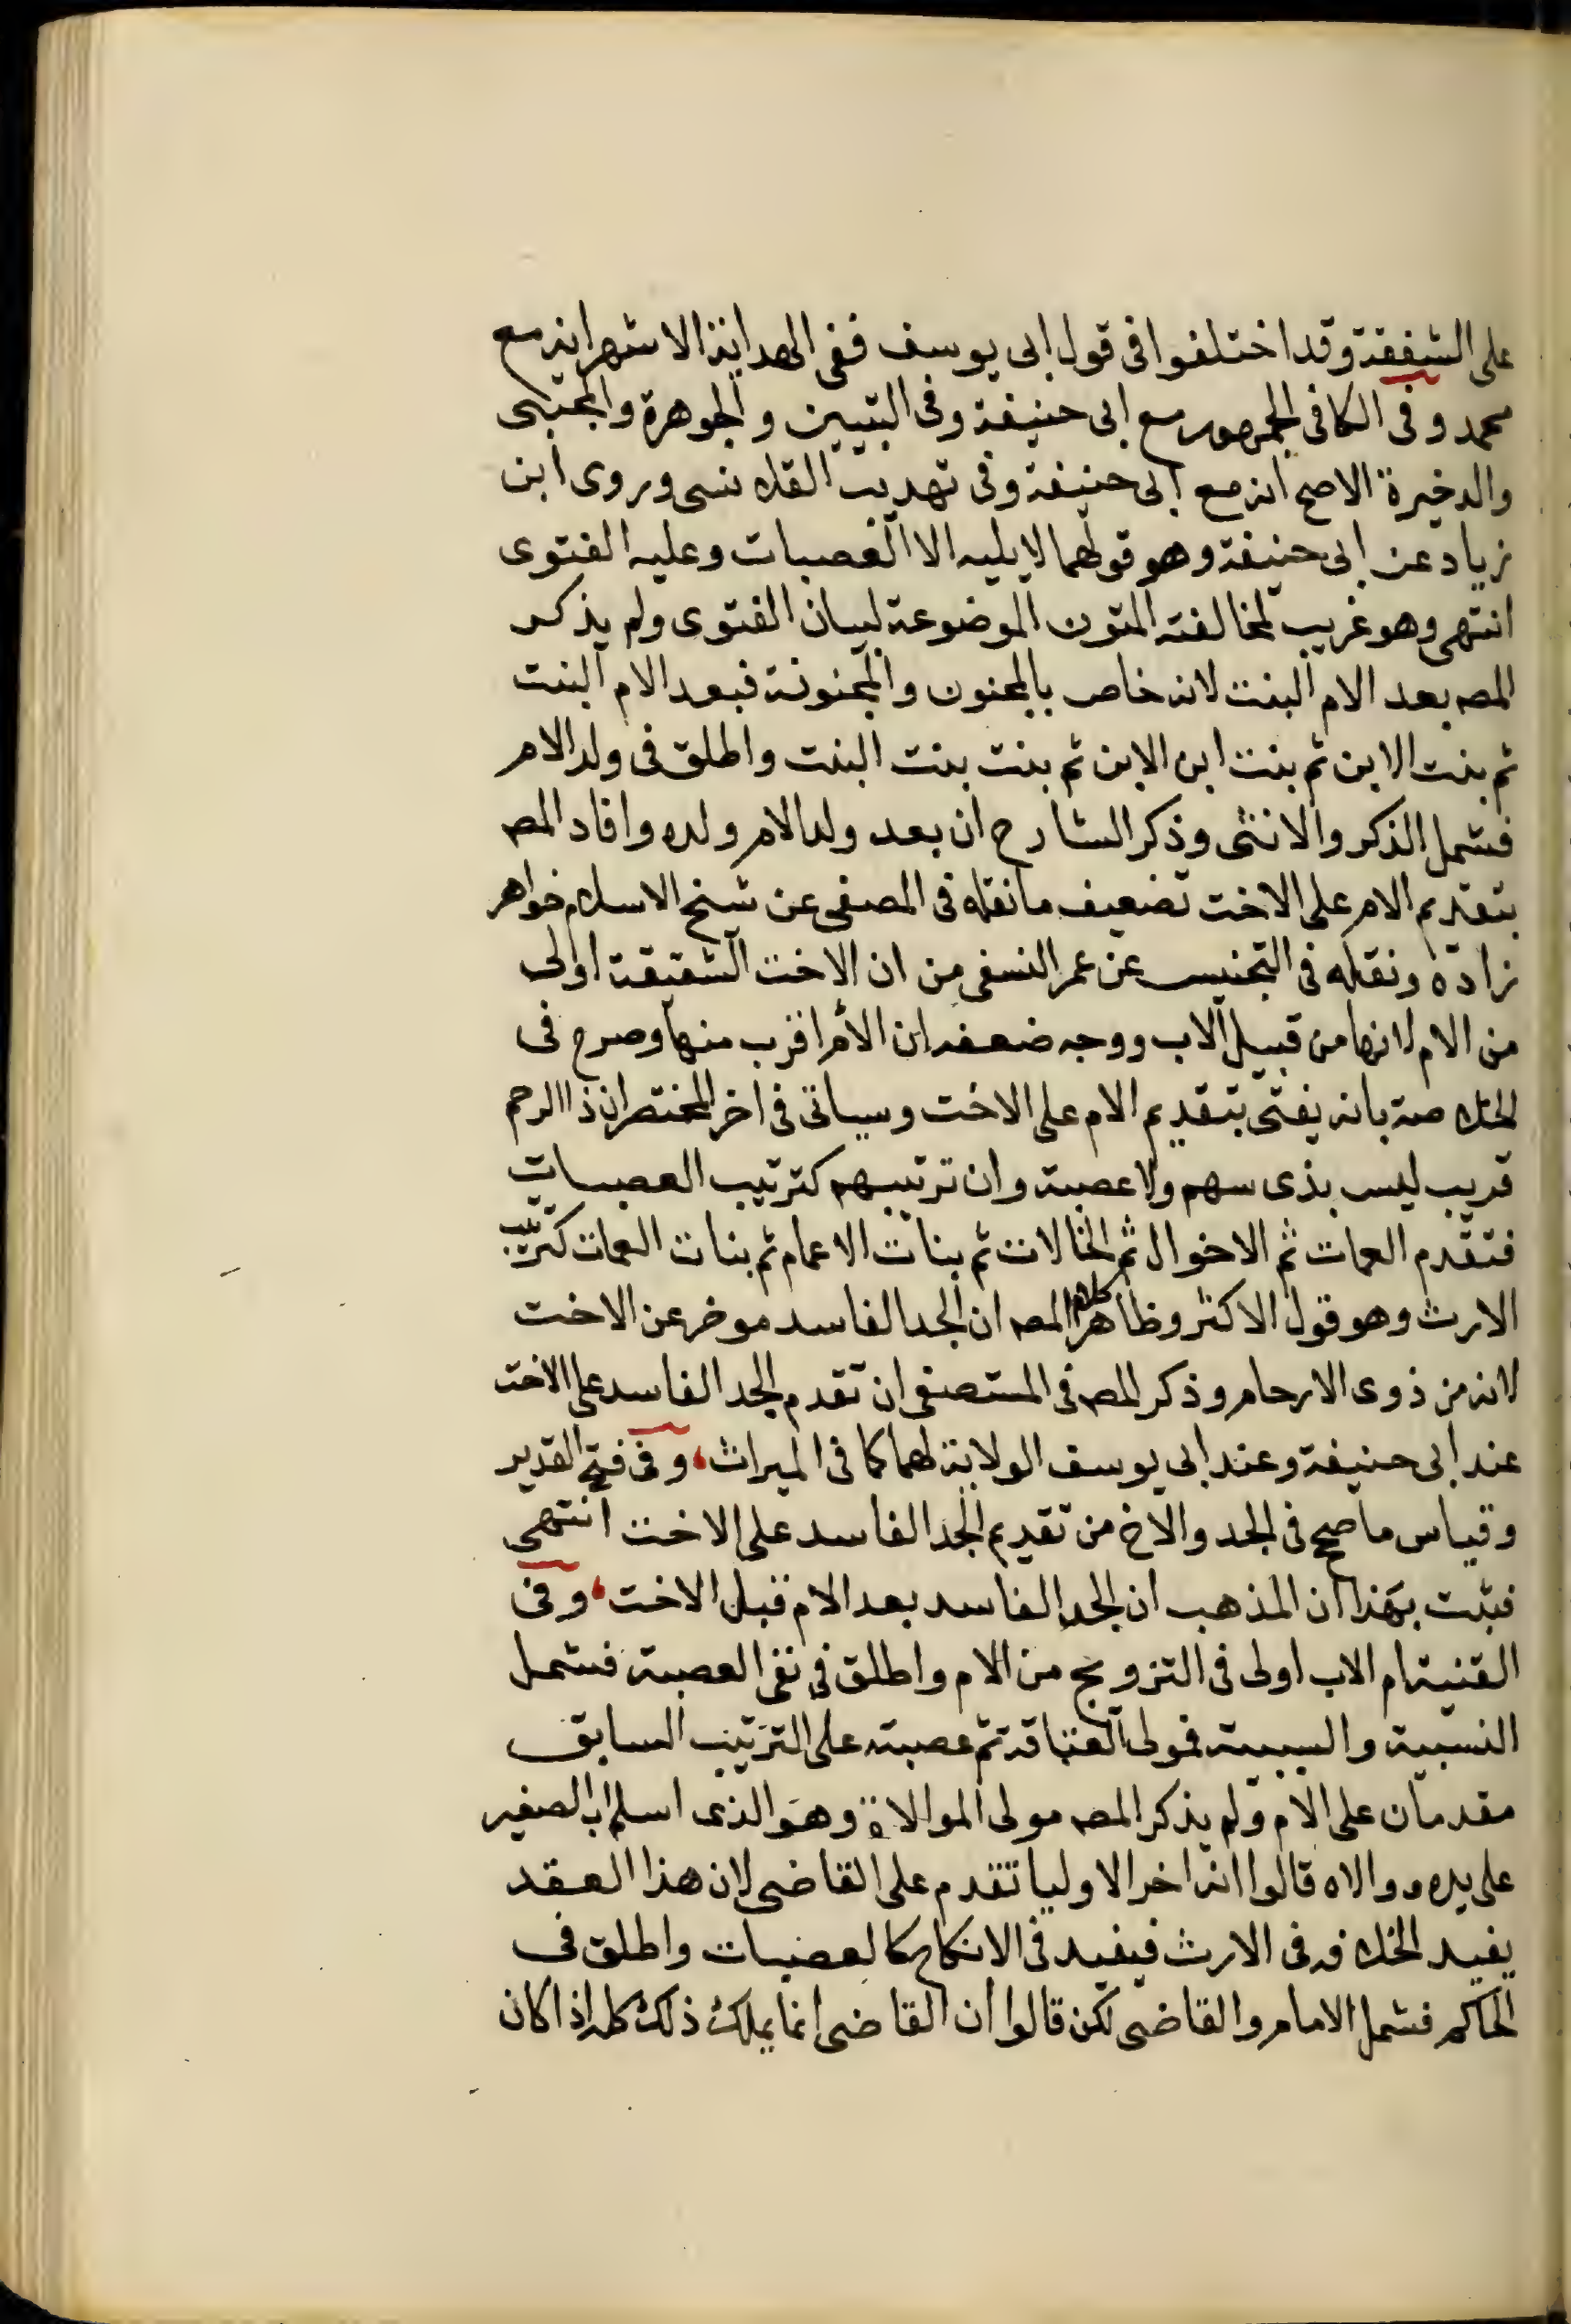 على الشفقة وقد اختلفوا فى قول ابى يوسف ففى الهداية الاشهر انه مع
محمد وفى الكافى الجمهور مع ابى حنيفة وفى التبيين والجوهرة والمجتبى
والدخيرة الاصح انه مع ابى حنيفة وفى تهديب القلانسى وروى ابن
زياد عن ابى حنيفة وهو قولهما لا يليه الا العصبات وعليه الفتوى
انتهى وهو غريب لمخالفته المتون الموضوعة لبيان الفتوى ولم يذكر
المصـ بعد الام البنت لانه خاص بالمجنون والمجنونة فبعد الام البنت
ثم بنت الابن ثم بنت ابن الابن ثم بنت بنت البنت واطلق فى ولد الام
فشمل الذكر والانثى وذكر الشارح ان بعد ولد الام ولده وافاد المصـ
بتقديم الام على الاخت تضعيف ما نقله فى المصفى عن شيخ الاسلام خواهر
زاده ونقله فى التجنيس عن عمر النسفى من ان الاخت الشقيقة اولى
من الام لانها من قبيل الاب ووجه ضعفه ان الام اقرب منها وصرح فى
الخلاصة بانه يفتى بتقديم الام على الاخت وسياتى فى اخر المختصر ان ذا الرحم
قريب ليس بذى سهم ولا عصبة وان ترتيبهم كترتيب العصبات
فتقدم العمات ثم الاخوال ثم الخالات ثم بنات الاعمام ثم بنات العمات كترتيب
الارث وهو قول الاكثر وظاهر كلام المصـ ان الجد الفاسد موخر عن الاخت
لانه من ذوى الارحام وذكر المصـ فى المستصفى ان تقدم الجد الفاسد على الاخت
عند ابى حنيفة وعند ابى يوسف الولاية لهما كما فى الميراث، وفى فتح القدير
وقياس ما صح فى الجد والاخ من تقديم الجد الفاسد على الاخت انتهى
فثبت بهذا ان المذهب ان الجد الفاسد بعد الام قبل الاخت، وفى
القنية ام الاب اولى فى التزويج من الام واطلق فى نفى العصبة فشمل
النسبية والسببية فمولى العتاقة ثم عصبته على الترتيب السابق
مقدمان على الام ولم يذكر المصـ مولى الموالاة وهو الذى اسلم اب الصغير
على يده ووالاه قالوا انه اخر الاوليا تقدم على القاضى لان هذا العقد
يفيد الخلافة فى الارث فيفيد فى الانكاح كالعصبات واطلق فى
الحاكم فشمل الامام والقاضى لكن قالوا ان القاضى انما يملك ذلك كله اذا كان